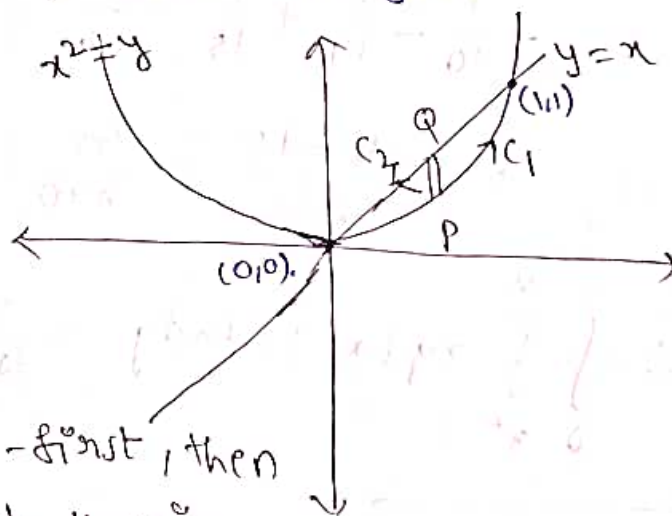 x² = y
y = x
(1,1)
Q
C₂
C₁
P
(0,0).
-first, then